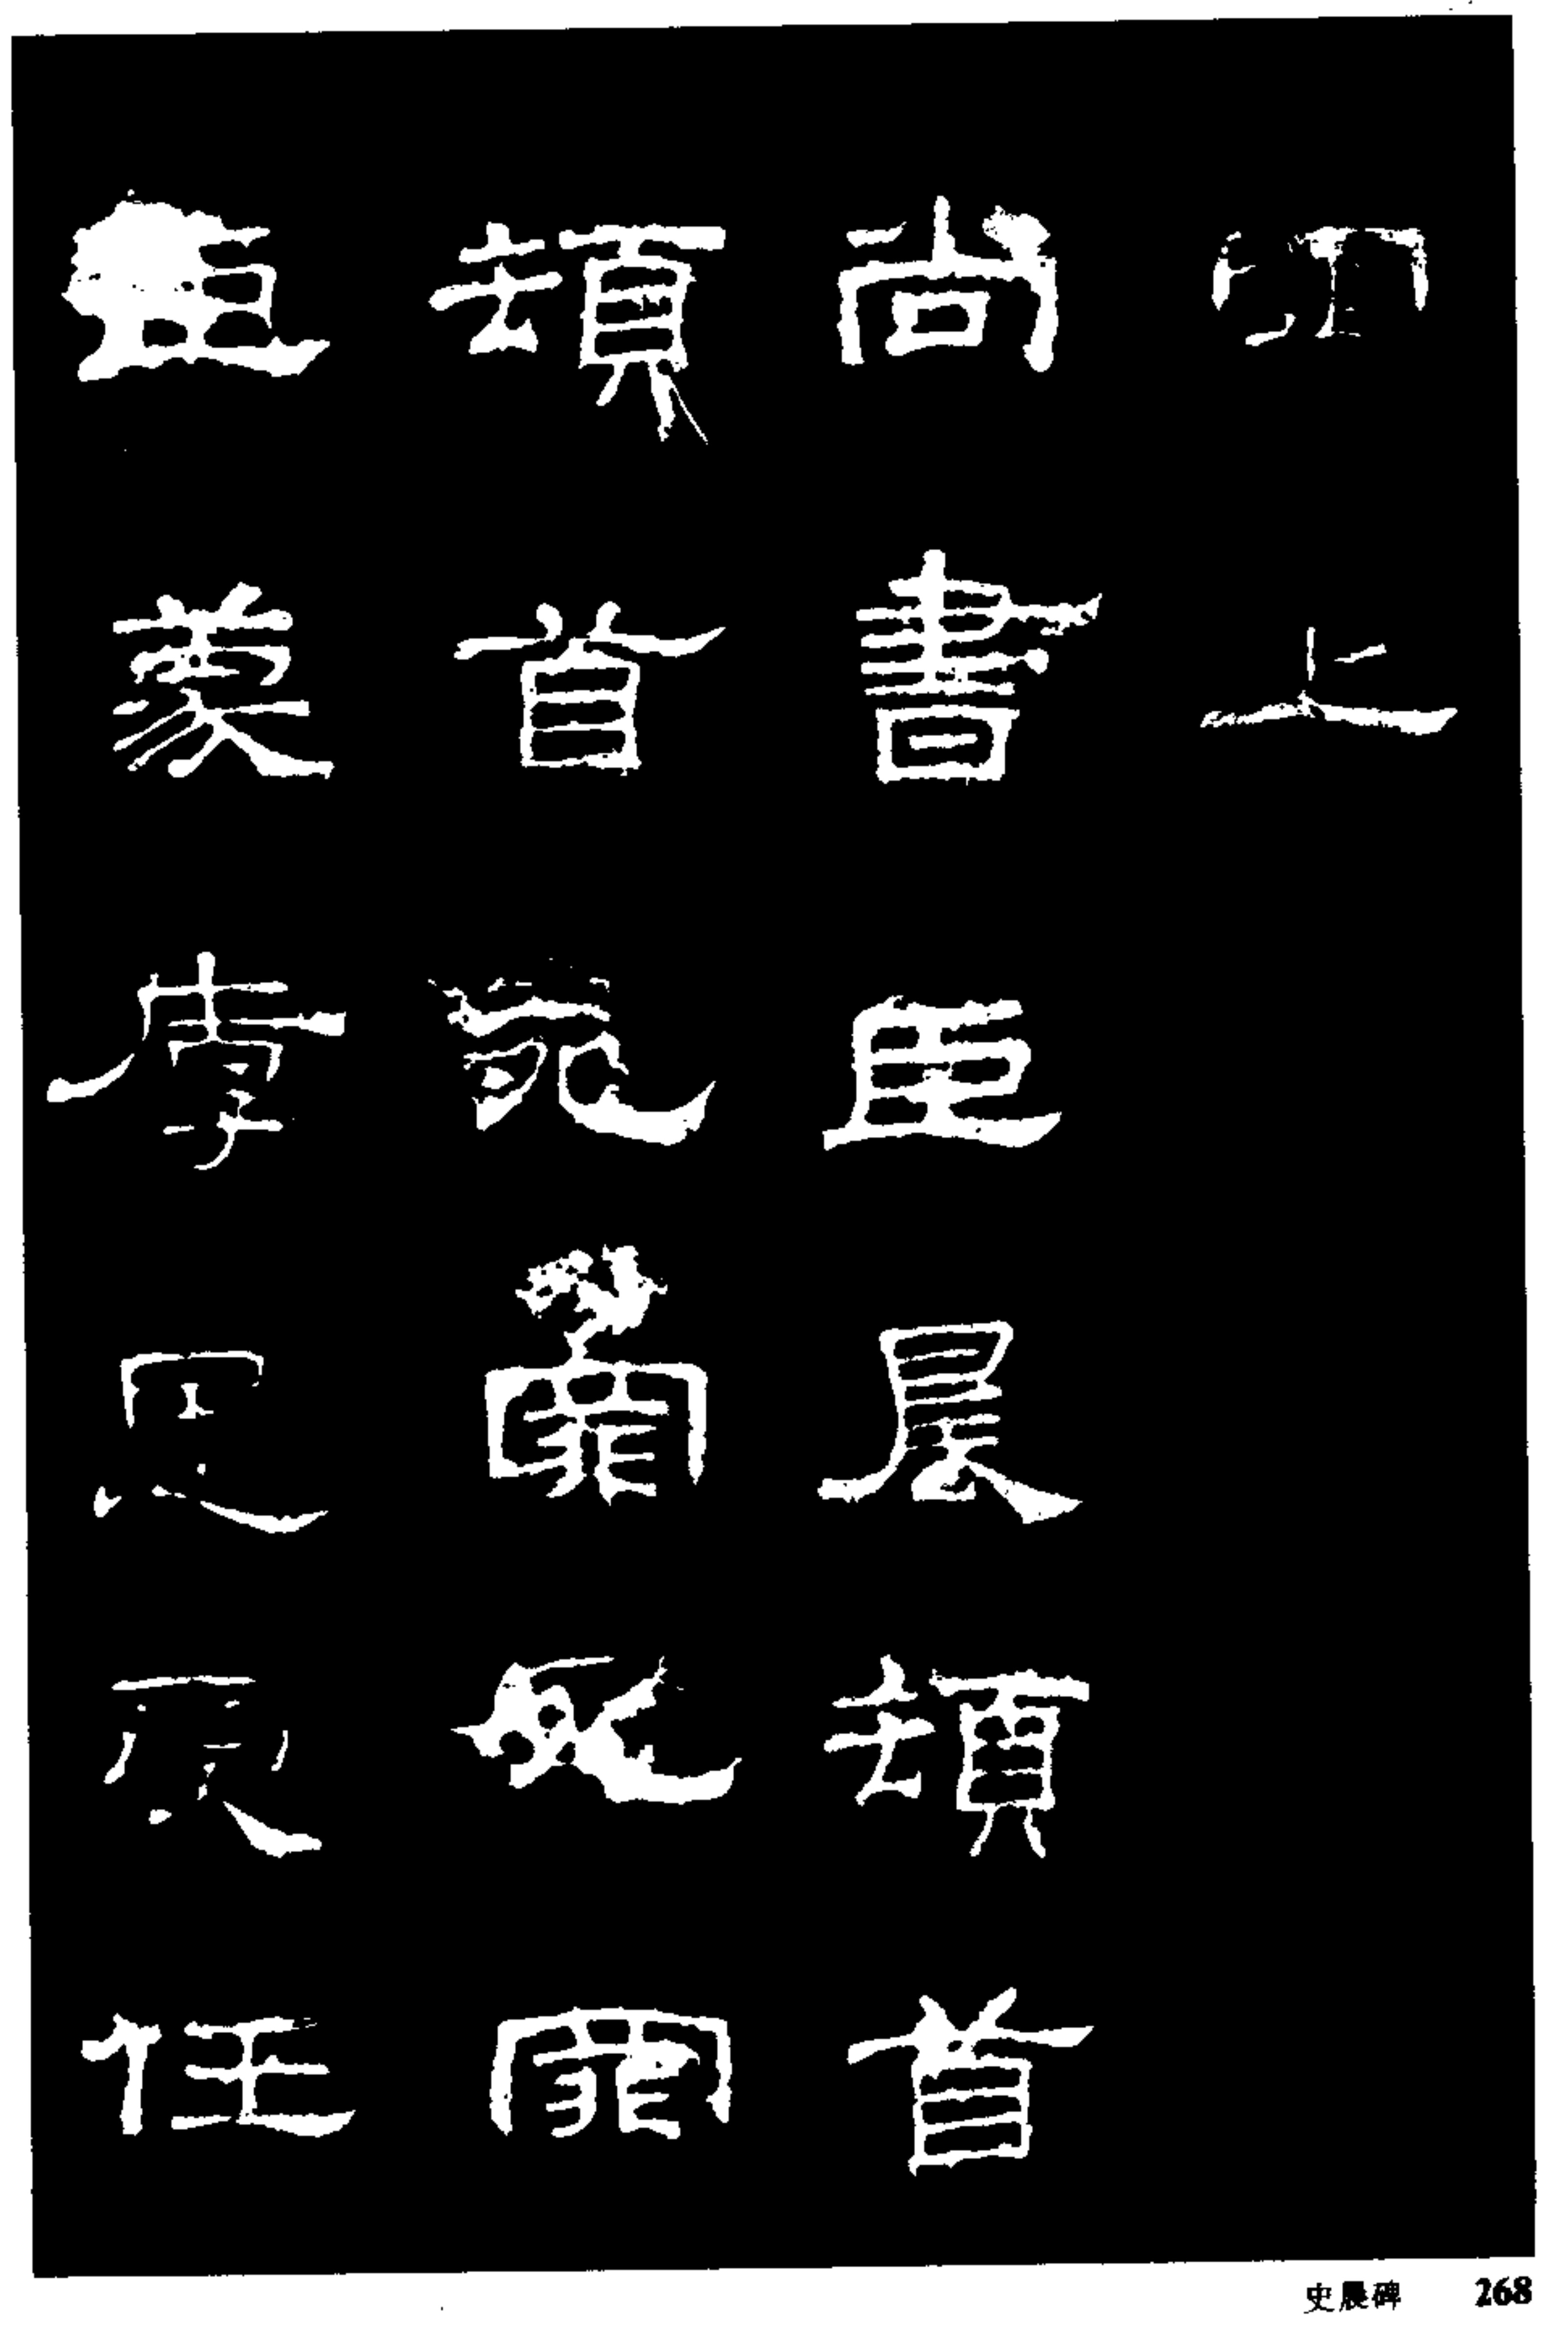 上
尚書臣晨頓首
頓首死罪死罪
臣蒙厚恩受任
史晨碑 268